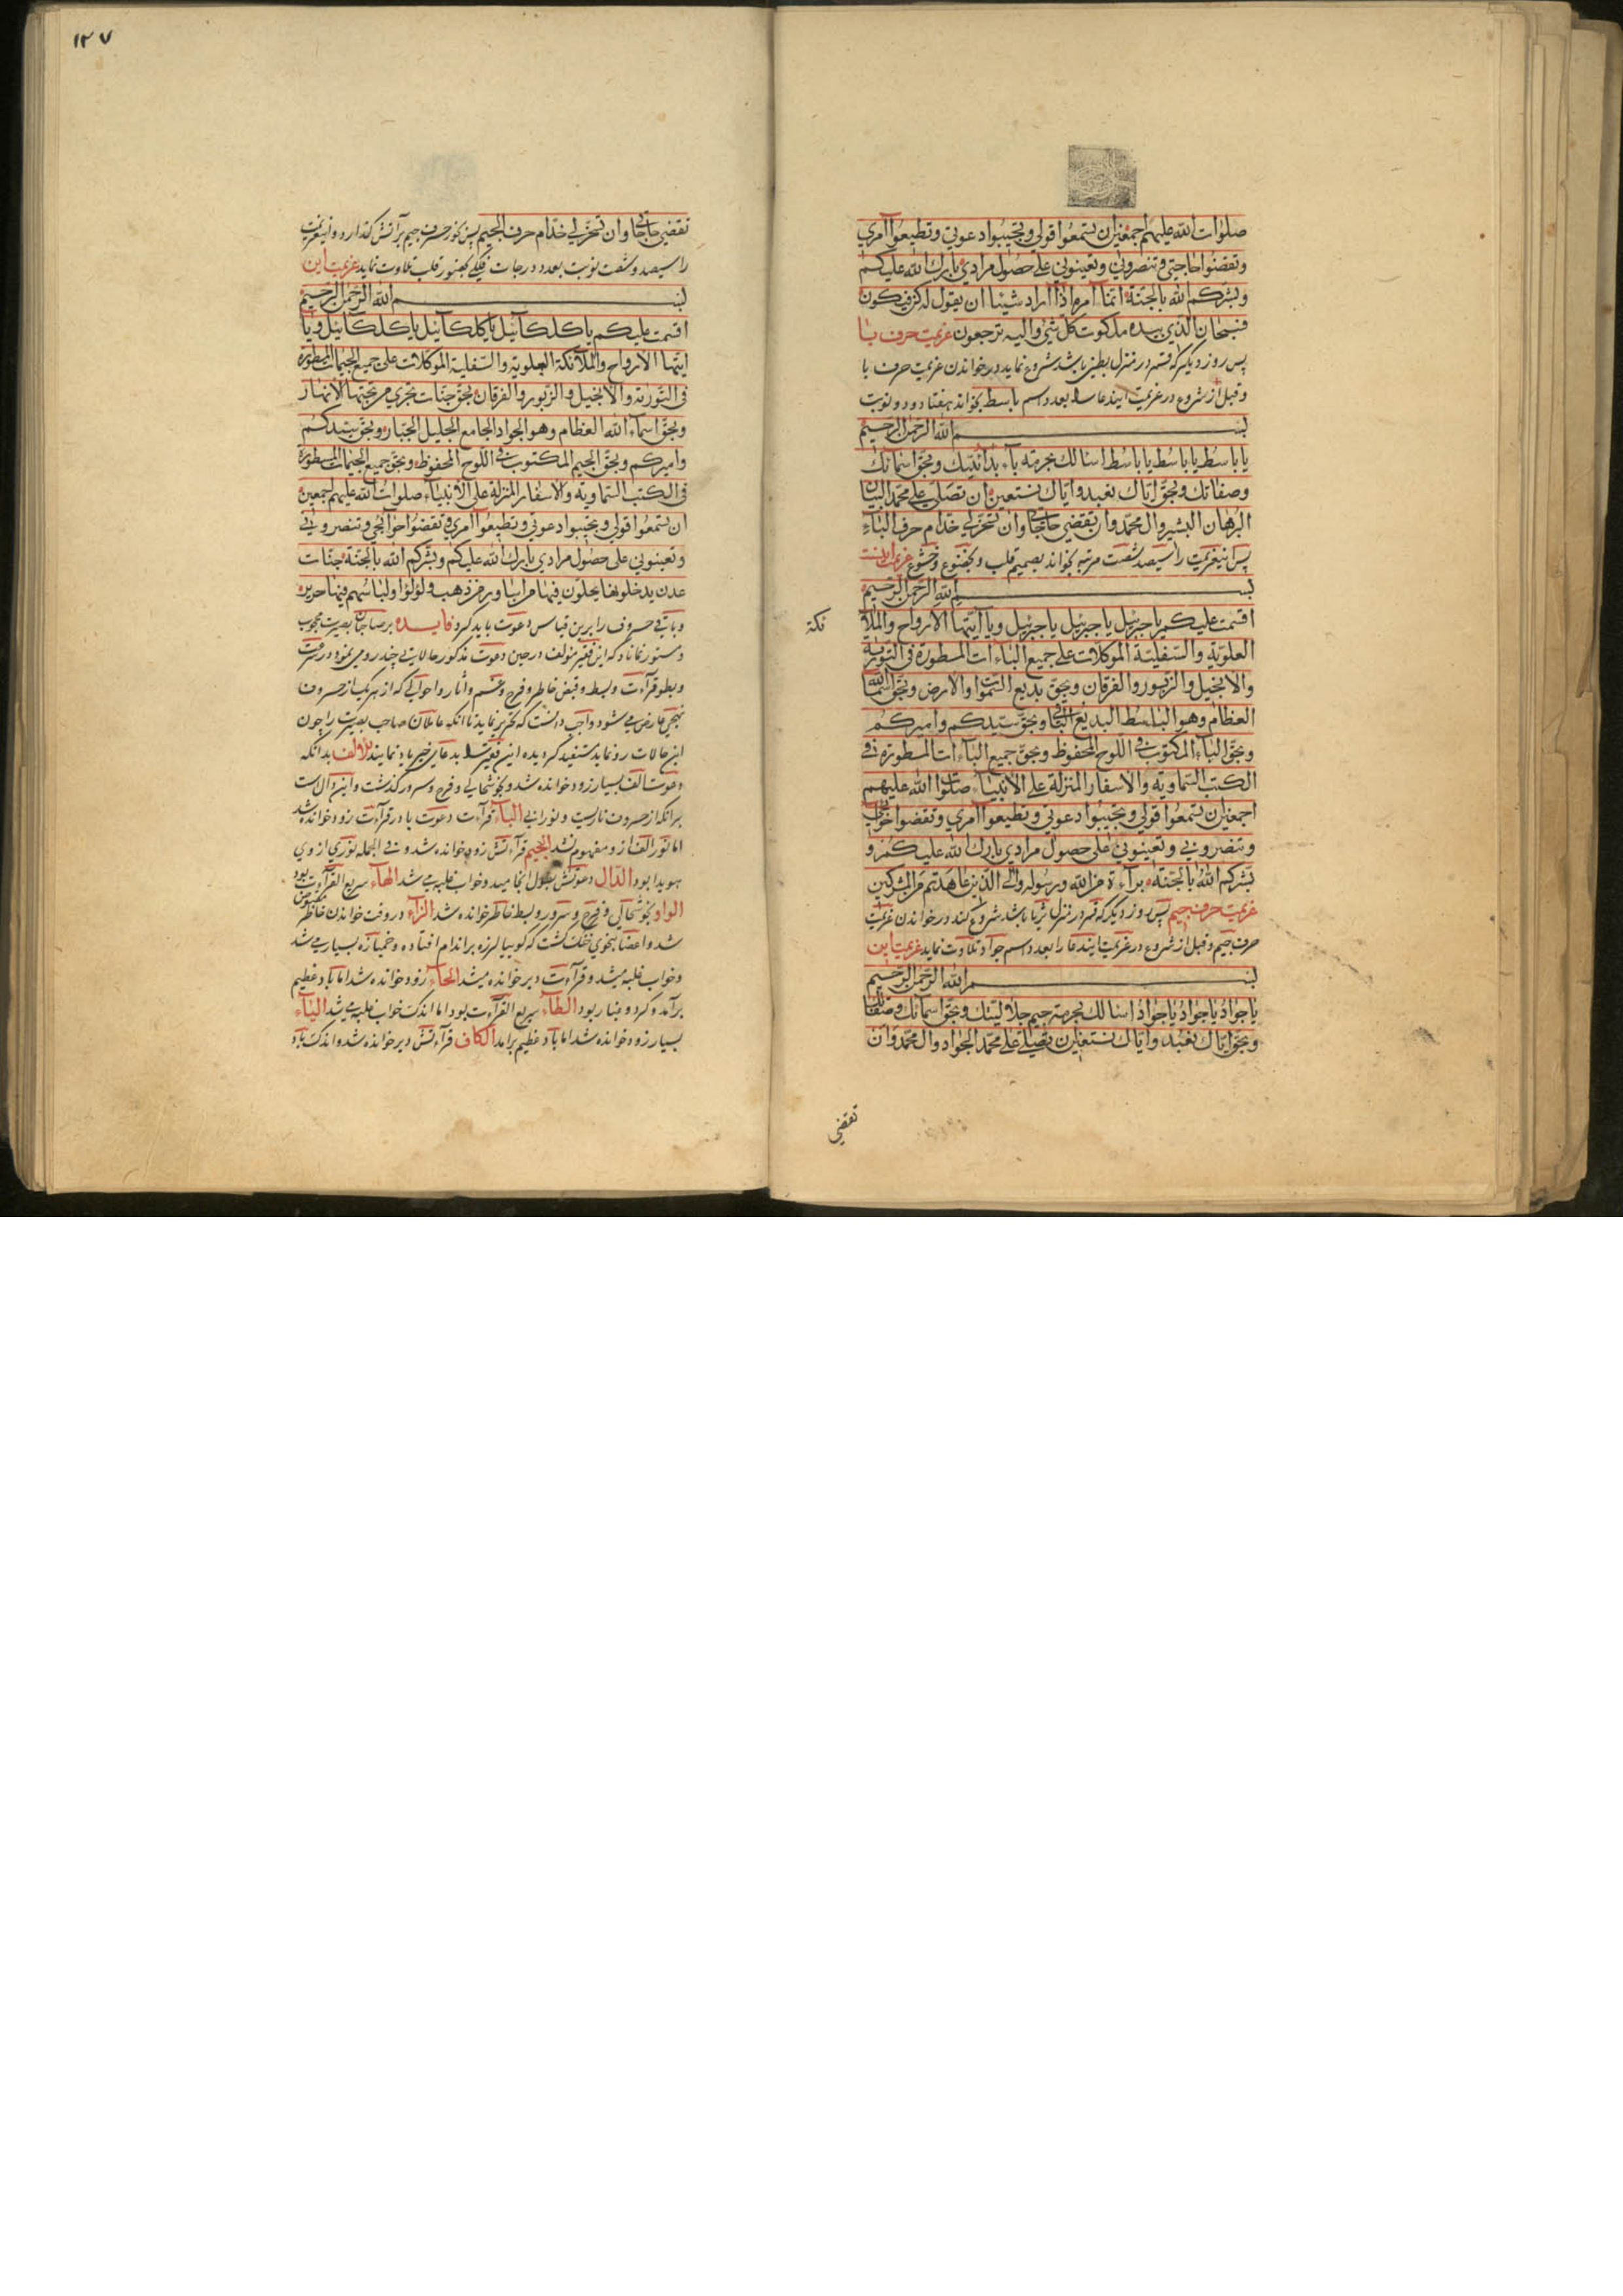 صلوات الله عليهم اجمعين ان تسمعوا قولي وتجيبوا دعوتي وتطيعوا امري
وتقضوا حاجتي وتنصروني وتعينوني على حصول مرادي بارك الله عليكم
وبشركم الله بالجنة انما امره اذا اراد شيئا ان يقول له كن فيكون
فسبحان الذي بيده ملكوت كل شيء واليه ترجعون عزيمت حرف با
پس روز ديگر كه قمر در منزل بطين باشد شروع نمايد در خواندن عزيمت حرف با
وقبل از شروع در عزيمت ايندعا را بعدد اسم باسط بخواند هفتاد ودو نوبت
بسم الله الرحمن الرحيم
يا باسط يا باسط يا باسط اسالك بحرمة باء بدائتك وبحق اسمائك
وصفاتك وبحق اياك نعبد واياك نستعين ان تصلي على محمد البيان
البرهان البشير وال محمد وان تقضي حاجاتي وان تسخر لي خدام حرف الباء
پس اينعزيمت را سيصد شصت مرتبه بخواند بصميم قلب وبخضوع وخشوع عزيمت اينست
بسم الله الرحمن الرحيم
اقسمت عليكم يا جبرئيل يا جبرئيل يا جبرئيل ويا ايتها الارواح والملائكة
العلوية والسفلية الموكلات على جميع الباءات المسطورة في التورية
والانجيل والزبور والفرقان وبحق بديع السموات والارض وبحق اسماء الله
العظام وهو الباسط البديع الباقي وبحق سيدكم واميركم
وبحق الباء المكتوب في اللوح المحفوظ وبحق جميع الباءات المسطورة في
الكتب السماوية والاسفار المنزلة على الانبياء صلوات الله عليهم
اجمعين ان تسمعوا قولي وتجيبوا دعوتي وتطيعوا امري وتقضوا حوائجي
وتنصروني وتعينوني على حصول مرادي بارك الله عليكم و
بشركم الله بالجنة براءة من الله ورسوله والى الذين عاهدتم من المشركين
عزيمت حرف جيم پس روز ديگر كه قمر در منزل ثريا باشد شروع كند در خواندن عزيمت
حرف جيم وقبل از شروع در عزيمت ايندعا را بعدد اسم جواد تلاوت نمايد عزيمت اين
بسم الله الرحمن الرحيم
يا جواد يا جواد يا جواد اسالك بحرمة جيم جلاليتك وبحق اسمائك وصفاتك
وبحق اياك نعبد واياك نستعين ان تصلي على محمد الجواد وال محمد وان
تقضي
١٢٧
تقضي حاجاتي وان تسخر لي خدام حرف الجيم پس بخور حرف جيم بر آتش گذارد واينعزيمت
را سيصد وشصت نوبت بعدد درجات فلكي بحضور قلب تلاوت نمايد عزيمت اين
بسم الله الرحمن الرحيم
اقسمت عليكم يا كلكائيل يا كلكائيل يا كلكائيل ويا
ايتها الارواح والملائكة العلوية والسفلية الموكلات على جميع الجيمات المسطورة
في التورية والانجيل والزبور والفرقان بحق جنات تجري من تحتها الانهار
وبحق اسماء الله العظام وهو الجواد الجامع الجليل الجبار وبحق سيدكم
واميركم وبحق الجيم المكتوب في اللوح المحفوظ وبحق جميع الجيمات المسطورة
في الكتب السماوية والاسفار المنزلة على الانبياء صلوات الله عليهم اجمعين
ان تسمعوا قولي وتجيبوا دعوتي وتطيعوا امري وتقضوا حوائجي وتنصروني
وتعينوني على حصول مرادي بارك الله عليكم وبشركم الله بالجنة جنات
عدن يدخلونها يحلون فيها من اساور من ذهب ولؤلؤا ولباسهم فيها حرير
وباقي حروف را برين قياس دعوت بايد كرد فايده بر صاحبان بصيرت محجوب
ومستور نماناد كه اين فقير مولف در حين دعوت مذكور حالات چند روي نمود در سرعت
وبطو قرآءت وبسط وقبض خاطر وفرح وغم وآثار واحوالي كه از هر يك از حروف
تهجي عارض مي شود واجب دانست كه تحرير نمايد تا آنكه عاملان صاحب بصيرت را چون
اين حالات رو نمايد مستفيد گرديده اين فقير را بدعاي خير ياد نمايند للالف بدانكه
دعوت الف بسيار زود خوانده شد وبخوشحالي وفرح وسرور گذشت واين دال است
برانكه از حروف ناريست ونوراني الباء قرآءت دعوت با در قرآءت زود خوانده شد
اما نور الف از و مفهوم نشد الجيم قرآءتش زود خوانده شد و في الجمله نوري از وي
هويدا بود الدال دعوتش بطول انجاميد وخواب غلبه مي شد الهاء سريع القرآءت بود
الواو بخوشحالي وفرح وسرور وبسط خاطر خوانده شد الزاء در وقت خواندن خاطر
شد واعضا بنحوي گشت كه گويا لرزه بر اندام افتاده وخميازه بسيار مي شد
وخواب غلبه ميشد وقرآءت دير خوانده ميشد الحاء زود خوانده شد اما باد عظيم
برآمد وگرد وغبار بود الطاء سريع القرآءت بود اما اندك خواب غلبه مي شد الياء
بسيار زود خوانده شد اما باد عظيم برامد الكاف قرآءتش دير خوانده شد واندك باد